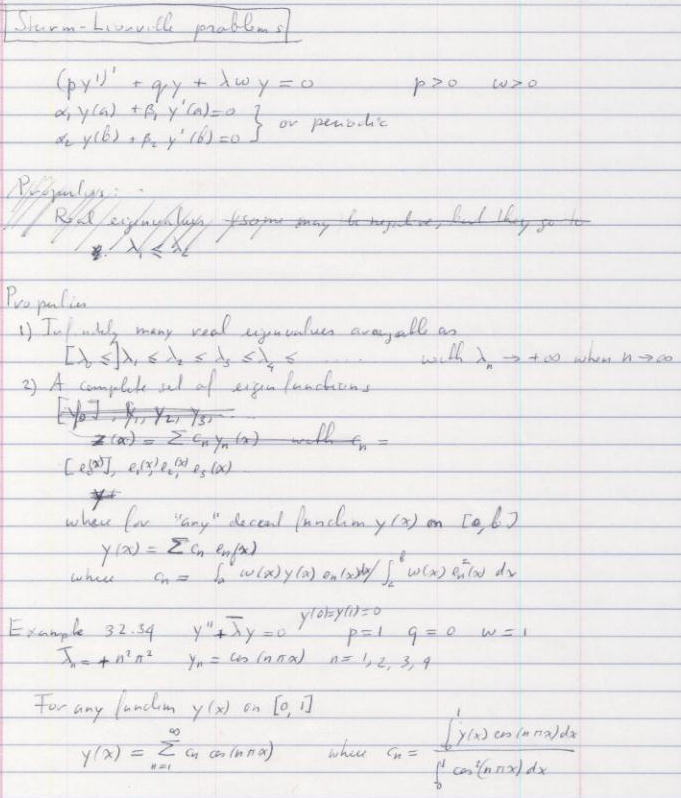 Sturm-Liouville problems
(py')' + qy + λwy = 0    p>0    w>0
α₁ y(a) + β₁ y'(a) = 0 } or periodic
α₂ y(b) + β₂ y'(b) = 0
Properties:
Real eigenvalues, some may be negative, but they go to
λ₁ ≤ λ₂
Properties
1) Infinitely many real eigenvalues arrangable as
[λ₀ ≤] λ₁ ≤ λ₂ ≤ λ₃ ≤ λ₄ ≤ ..... with λₙ → +∞ when n → ∞
2) A complete set of eigenfunctions
[y₀], y₁, y₂, y₃, ...
z(x) = Σ cₙ yₙ(x) with cₙ =
[e₀(x)], e₁(x), e₂(x), e₃(x)
where for "any" decent function y(x) on [a, b]
y(x) = Σ cₙ eₙ(x)
where cₙ = ∫ₐᵇ w(x) y(x) eₙ(x) dx / ∫ₐᵇ w(x) eₙ²(x) dx
y(0)=y(1)=0
Example 32.34    y'' + λ̄y = 0    p=1    q=0    w=1
λ̄ₙ = +n²π²    yₙ = cos(nπx)    n = 1, 2, 3, 4
For any function y(x) on [0, 1]
y(x) = Σ_{n=1}^{∞} cₙ cos(nπx)    where cₙ = ∫₀¹ y(x) cos(nπx) dx / ∫₀¹ cos²(nπx) dx